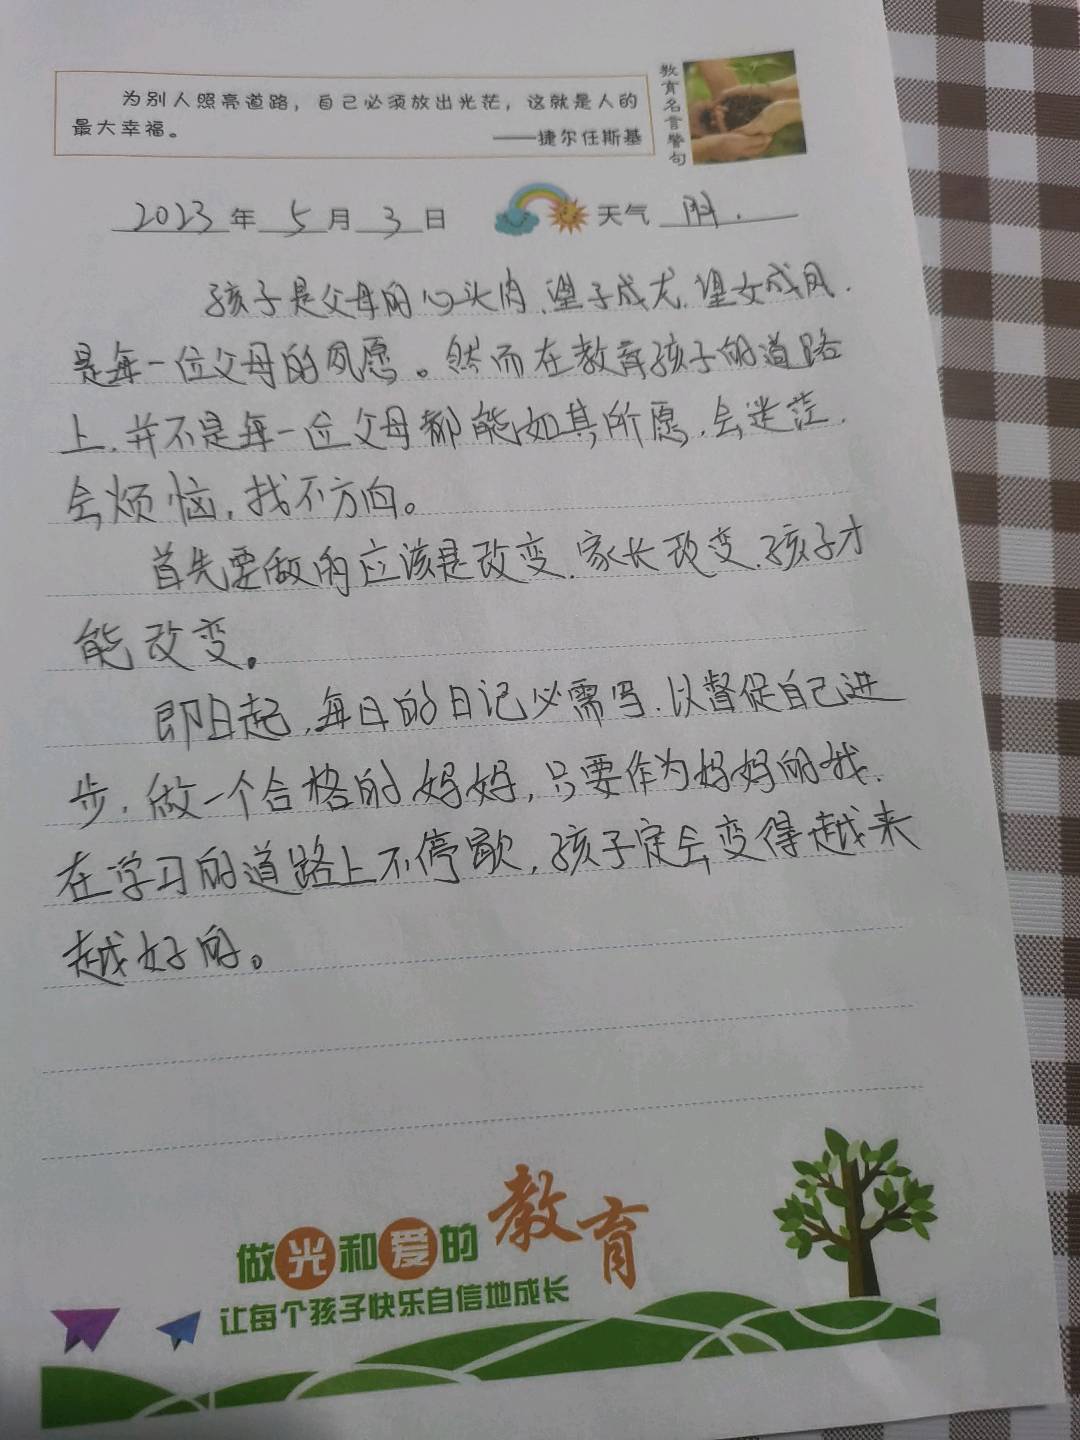 为别人照亮道路，自己必须放出光芒，这就是人的
最大幸福。
——捷尔任斯基
教育名言警句
2023年5月3日 天气 阴.
孩子是父母的心头肉、望子成龙、望女成凤.
是每一位父母的夙愿。然而在教育孩子的道路
上,并不是每一位父母都能如其所愿,会迷茫,
会烦恼,找不方向。
首先要做的应该是改变.家长改变.孩子才
能改变。
即日起,每日的日记必需写.以督促自己进
步,做一个合格的妈妈,只要作为妈妈的我.
在学习的道路上不停歇,孩子定会变得越来
越好的。
做光和爱的教育
让每个孩子快乐自信地成长